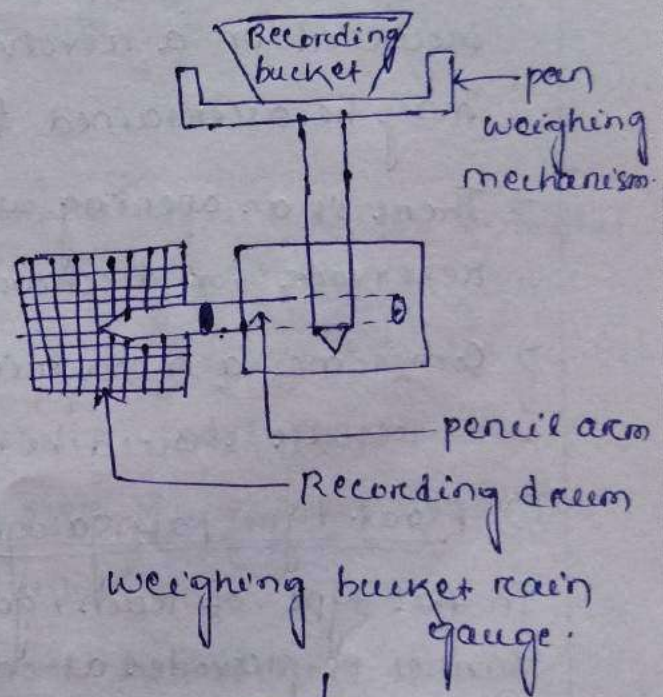 Recording
bucket
pan
weighing
mechanism.
pencil arm
Recording drum
weighing bucket rain
gauge.